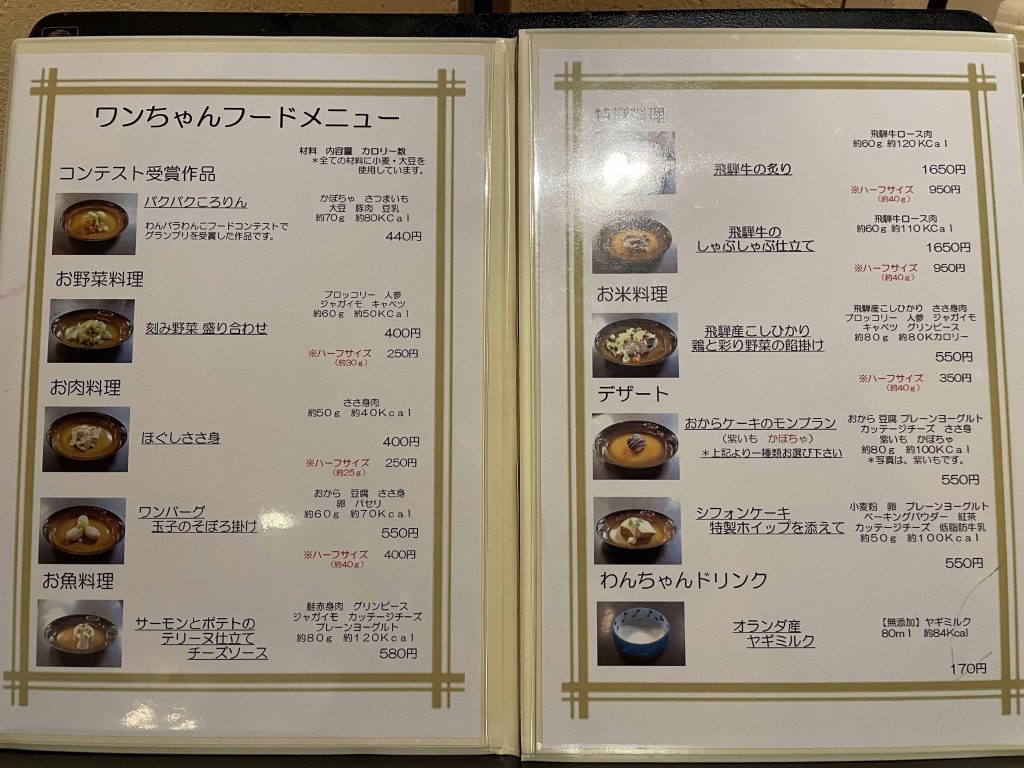 ワンちゃんフードメニュー
材料 内容量 カロリー数
*全ての材料に小麦・大豆を
使用しています。
コンテスト受賞作品
パクパクころりん
わんパラわんこフードコンテストで
グランプリを受賞した作品です。
かぼちゃ さつまいも
大豆 豚肉 豆乳
約70g 約80KCal
440円
お野菜料理
刻み野菜 盛り合わせ
ブロッコリー 人参
ジャガイモ キャベツ
約60g 約50KCal
400円
※ハーフサイズ 250円
(約30g)
お肉料理
ほぐしささ身
ささ身肉
約50g 約40Kcal
400円
※ハーフサイズ 250円
(約25g)
ワンバーグ
玉子のそぼろ掛け
おから 豆腐 ささ身
卵 パセリ
約60g 約70Kcal
550円
※ハーフサイズ 400円
(約40g)
お魚料理
サーモンとポテトの
テリーヌ仕立て
チーズソース
鮭赤身肉 グリンピース
ジャガイモ カッテージチーズ
プレーンヨーグルト
約80g 約120KCal
580円
料理
飛騨牛の炙り
飛騨牛ロース肉
約60g 約120KCal
1650円
※ハーフサイズ 950円
(約40g)
飛騨牛の
しゃぶしゃぶ仕立て
飛騨牛ロース肉
約60g 約110KCal
1650円
※ハーフサイズ 950円
(約40g)
お米料理
飛騨産こしひかり
鶏と彩り野菜の餡掛け
飛騨産こしひかり ささ身肉
ブロッコリー 人参 ジャガイモ
キャベツ グリンピース
約80g 約80Kカロリー
550円
※ハーフサイズ 350円
(約40g)
デザート
おからケーキのモンブラン
(紫いも かぼちゃ)
*上記より一種類お選び下さい
おから 豆腐 プレーンヨーグルト
カッテージチーズ ささ身
紫いも かぼちゃ
約80g 約100KCal
*写真は、紫いもです。
550円
シフォンケーキ
特製ホイップを添えて
小麦粉 卵 プレーンヨーグルト
ベーキングパウダー 紅茶
カッテージチーズ 低脂肪牛乳
約50g 約100Kcal
550円
わんちゃんドリンク
オランダ産
ヤギミルク
【無添加】ヤギミルク
80ml 約84Kcal
170円